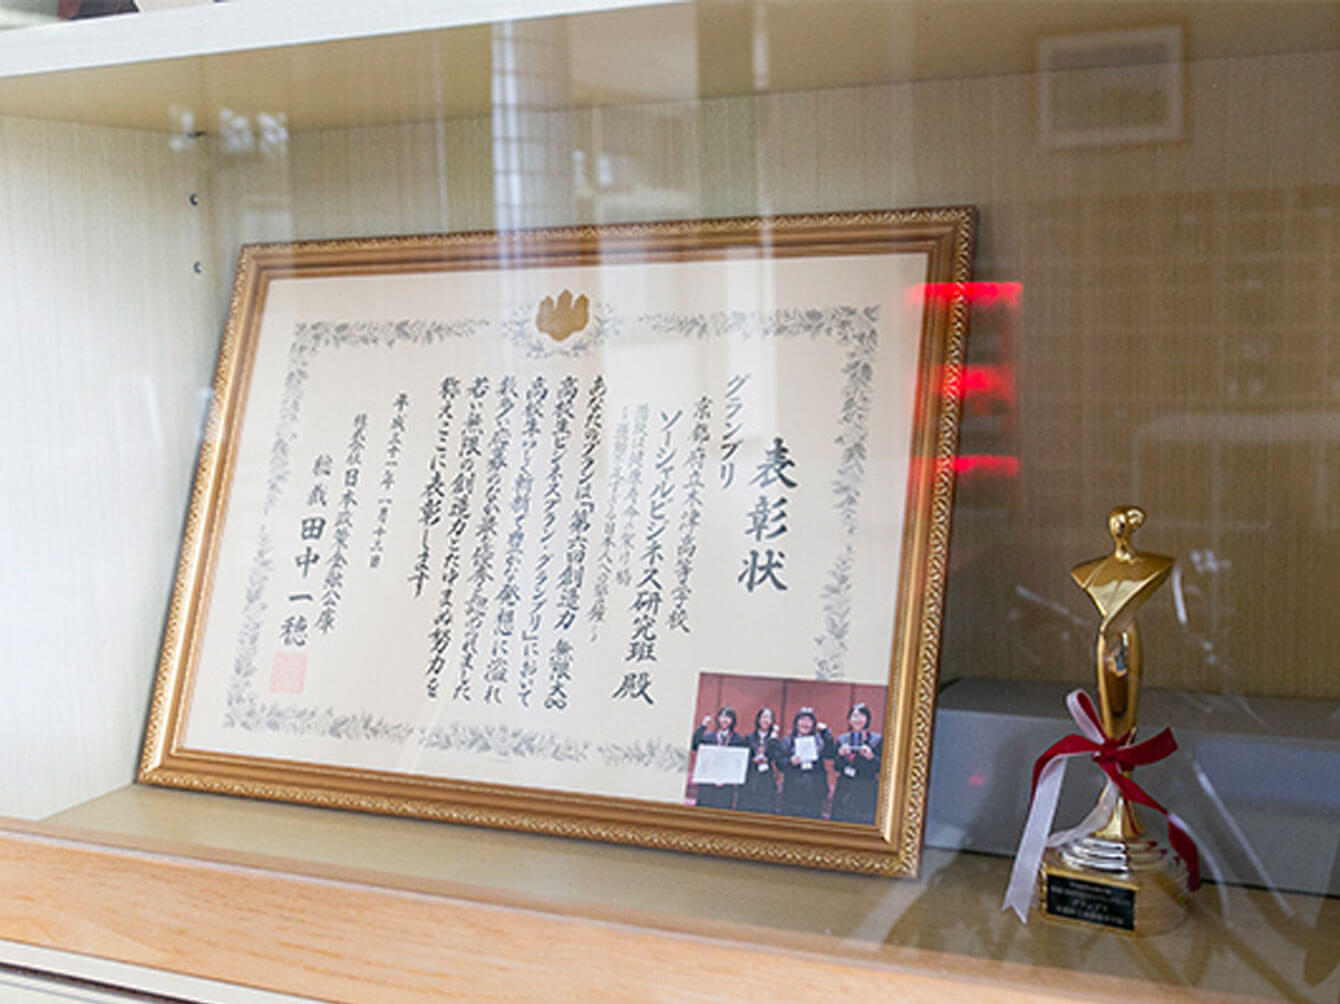 表彰状
グランプリ
京都府立木津高等学校
ソーシャルビジネス研究班 殿
あなたのプランは「第六回創造力、無限大∞
高校生ビジネスプラン・グランプリ」において
高校生らしく斬新で豊かな発想に溢れ
数多い応募のなか最も優秀と認められました
若い無限の創造力とたゆまぬ努力を
称えここに表彰します
平成三十一年一月十三日
株式会社日本政策金融公庫
総裁 田中一穂
グランプリ